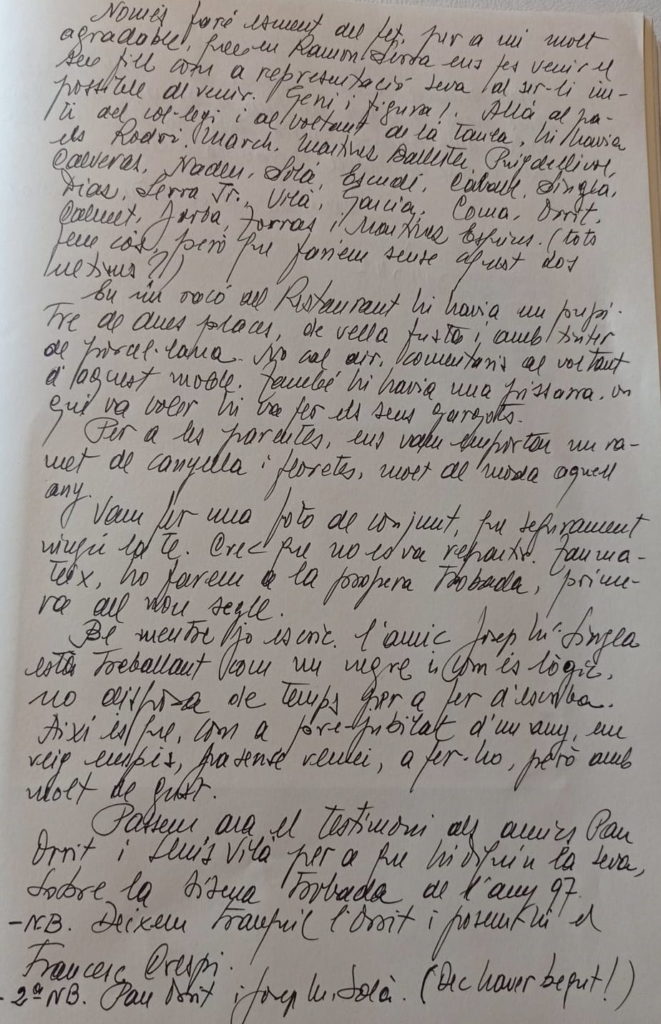 Només faré esment del fet, per a mi molt
agradable, que en Ramon Serra ens fes venir el
seu fill com a representació seva al ser-li im-
possible de venir. Geni i figura! Allà al pa-
ti del col·legi i al voltant de la taula, hi havia
els Rodri, March, Martínez Ballesté, Puigdellívol,
Calveras, Nadeu, Solà, Escudé, Singla,
Dias, Serra Jr, Vilà, Garcia, Coma, Orrit,
Calmet, Jorba, Torras i Martínez (tots
fem cas, però què faríem sense aquest dos
últims?!)
En un racó del Restaurant hi havia un pupi-
tre de dues places, de vella fusta i amb tinter
de porcel·lana. No cal dir, comentaris al voltant
d'aquest moble. També hi havia una pissarra. on
qui va voler hi va fer els seus gargots.
Per a les parentes, ens vam emportar un ra-
met de canyella i floretes, molt de moda aquell
any.
Vam fer una foto de conjunt, que segurament
ningú la te. Crec que no es va repartir. Tanma-
teix, ho farem a la propera Trobada, prime-
ra del nou segle.
Bé mentre jo escric. l'amic Josep Mª Singla
està treballant com un negre i com és lògic,
no disposa de temps per a fer d'escriba.
Així és que, com a pre-jubilat d'un any, em
veig empès, pasense remei, a fer-ho, però amb
molt de gust.
Passem ara el testimoni als amics Pau
Orrit i Lluís Vilà per a que hi diguin la seva,
sobre la sisena Trobada de l'any 97.
-NB. Deixem tranquil l'Orrit i posem-hi el
Francesc Crespi.
- 2ª NB. Pau Orrit i Josep M. Solà. (Dec haver begut!)